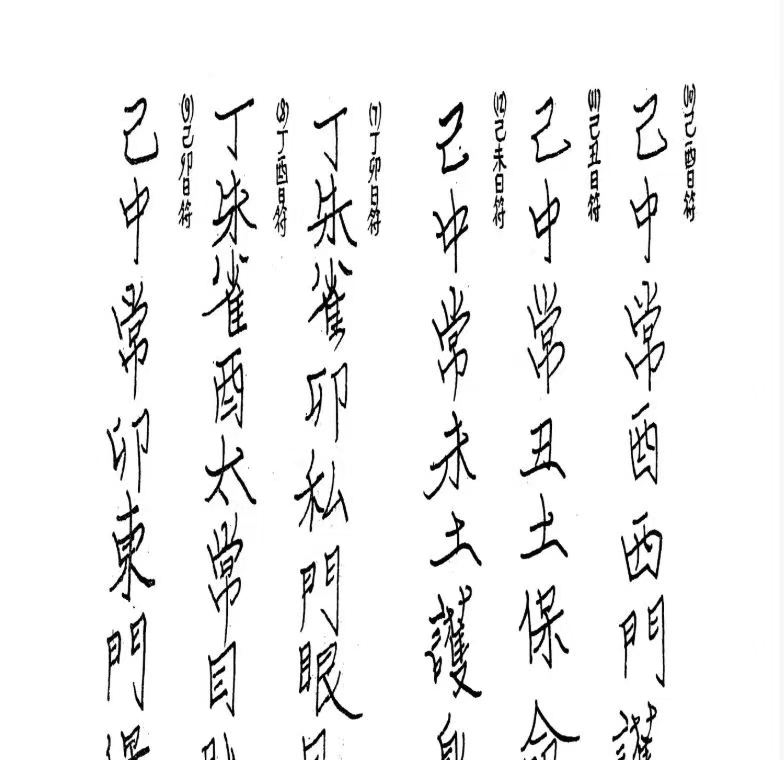 (10)己酉日符
己中常酉西門護
(11)己丑日符
己中常丑土保命
(12)己未日符
己中常未土護
(7)丁卯日符
丁朱雀卯私門眼
(8)丁酉日符
丁朱雀酉太常目
(9)己卯日符
己中常卯東門